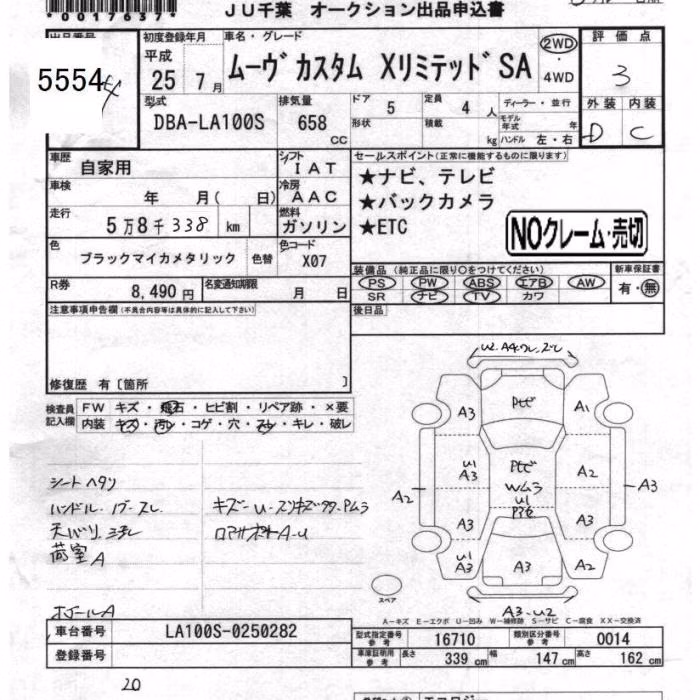 *0017637*
JU千葉 オークション出品申込書
5554
初度登録年月
平成
25 7月
車名・グレード
ムーヴカスタム Xリミテッド SA
2WD
・
4WD
評価点
3
外装 内装
D C
型式
DBA-LA100S
排気量
658
CC
ドア 5
定員 4 人
形状
積載 kg
ディーラー・並行
モデル年式 年
ハンドル 左・右
車歴
自家用
シフト
IAT
車検
年 月( 日)
冷房
AAC
走行
5万8千338 km
燃料
ガソリン
色
ブラックマイカメタリック
色替
色コード
X07
R券
8,490円
名変通知期限
月 日
セールスポイント(正常に機能するものに限ります)
★ナビ、テレビ
★バックカメラ
★ETC
NOクレーム・売切
装備品 (純正品に限り○をつけてください)
PS PW ABS エアB AW
SR ナビ TV カワ
新車保証書
有・無
後日品
注意事項申告欄(不具合内容等は具体的に記入して下さい)
修復歴 有〔箇所 〕
検査員
記入欄
FW キズ・飛石・ヒビ割・リペア跡・×要
内装 キズ・汚レ・コゲ・穴・スレ・キレ・破レ
シートヘタリ
ハンドル・
荷室A
キズー U・
U2.A4.ワレ.ズレ
A3 A1
U1
A3
Wムラ
U1
A2
A2 A3
A3 A3
U1
A3
A3
A2
スペア
A3-U2
A-キズ E-エクボ U-凹み W-補修跡 S-サビ C-腐食 XX-交換済
車台番号
LA100S-0250282
登録番号
型式指定番号
参考
16710
類別区分番号
参考
0014
車庫証明用
参考
長さ 339 cm
幅 147 cm
高さ 162 cm
20